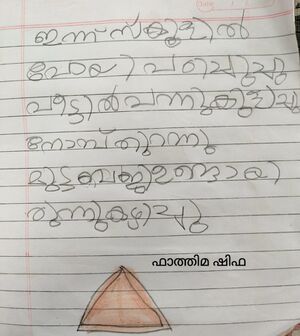 ഇന്ന് സ്കൂളിൽ
പോയി പഠിച്ചു
വീട്ടിൽ വന്നു കുളിച്ചു
നോമ്പ് തുറന്നു
മുട്ട ബജ്ജി ഉണ്ടായി
രുന്നു കഴിച്ചു
ഫാത്തിമ ഷിഫ